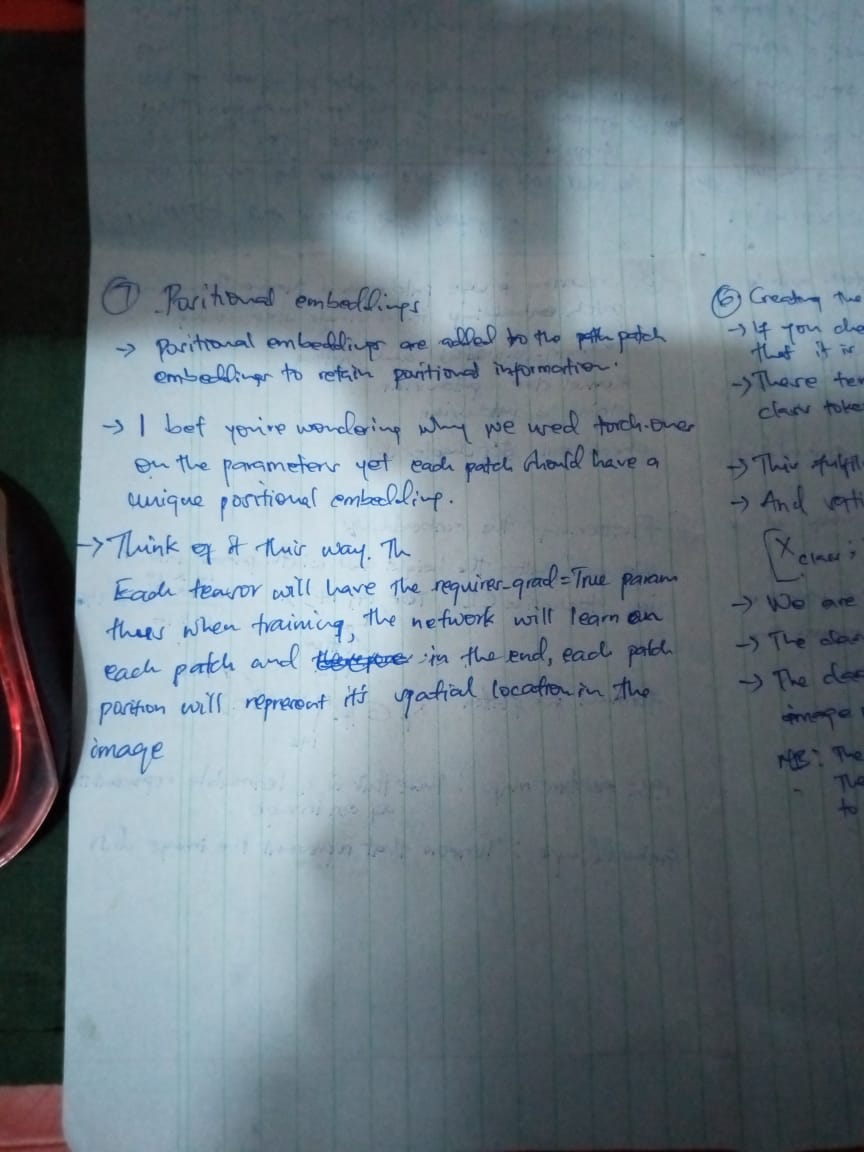 ⑦ Positional embeddings
→ positional embeddings are added to the patch
embeddings to retain positional information.
→ I bet you're wondering why we used torch.ones
on the parameters yet each patch should have a
unique positional embedding.
→ Think of it this way. Th
Each tensor will have the requires_grad=True param
thus when training, the network will learn on
each patch and therefore in the end, each patch
position will represent it's spatial location in the
image
⑥ Creating the
→ If you che
that it is
→ These ten
class toke
→ This fulfil
→ And
[x class;
→ We are
→ The clas
→ The
image
NB: The
The
to